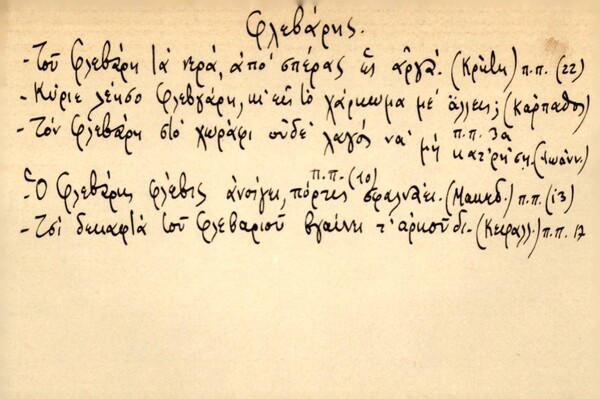 Φλεβάρης.
- Τοῦ Φλεβάρη τὰ νερά, ἀπὸ σπέρας ὣς ἀργά. (Κρήτη) π.π. (22)
- Κύριε λέησο Φλεβγάρη, κι' εἰς τὸ χάρκωμα μὲ ἄλλεις; (Κάρπαθος)
- Τὸν Φλεβάρη στὸ χωράφι οὐδὲ λαγὸς νὰ μὴ κατρήση. (Ἰωάνν.) π.π. 3α
- Ὁ Φλεβάρης φλέβες ἀνοίγει, πόρτες σφαλνάει. (Μακεδ.) π.π. (13)
π.π. (10)
- Τσὶ δεκαφτὰ τοῦ Φλεβαριοῦ βγαίνει τ' ἀρκοῦδι - (Κεφαλλ.) π.π. 17